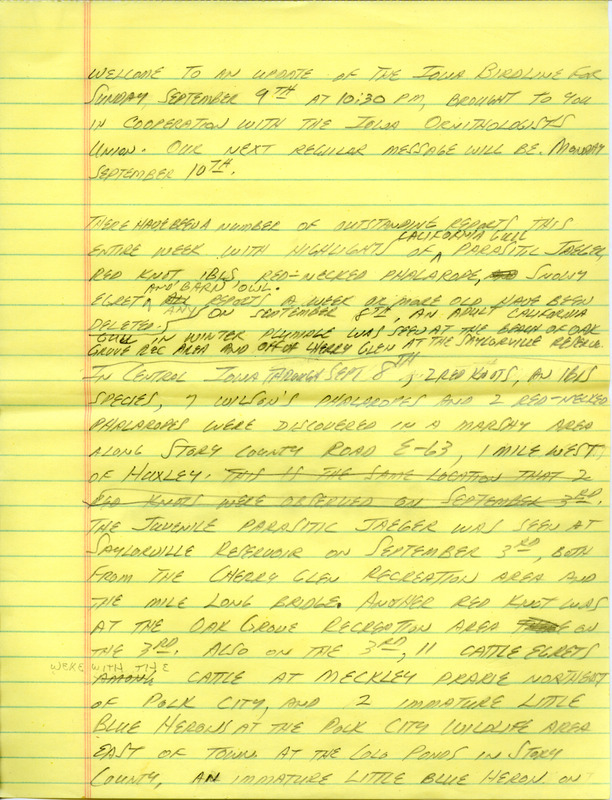 WELCOME TO AN UPDATE OF THE IOWA BIRDLINE FOR
SUNDAY, SEPTEMBER 9TH AT 10:30 PM, BROUGHT TO YOU
IN COOPERATION WITH THE IOWA ORNITHOLOGISTS
UNION. OUR NEXT REGULAR MESSAGE WILL BE MONDAY
SEPTEMBER 10TH.
THERE HAVE BEEN A NUMBER OF OUTSTANDING REPORTS THIS
CALIFORNIA GULL
ENTIRE WEEK WITH HIGHLIGHTS OF ^ PARASITIC JAEGER,
RED KNOT, IBIS, RED-NECKED PHALAROPE, SNOWY
AND BARN OWL.
EGRET ^ REPORTS A WEEK OR MORE OLD HAVE BEEN
DELETED. ANY ON SEPTEMBER 8TH, AN ADULT CALIFORNIA
GULL IN WINTER PLUMAGE WAS SEEN AT THE BEACH OF OAK
GROVE REC AREA AND OFF OF CHERRY GLEN AT THE SAYLORVILLE
IN CENTRAL IOWA THROUGH SEPT 8TH, 2 RED KNOTS, AN IBIS
SPECIES, 7 WILSON'S PHALAROPES AND 2 RED-NECKED
PHALAROPES WERE DISCOVERED IN A MARSHY AREA
ALONG STORY COUNTY ROAD E-63, 1 MILE WEST
OF HUXLEY. THIS IS THE SAME LOCATION THAT 2
RED KNOTS WERE OBSERVED ON SEPTEMBER 3RD.
THE JUVENILE PARASITIC JAEGER WAS SEEN AT
SAYLORVILLE RESERVOIR ON SEPTEMBER 3RD, BOTH
FROM THE CHERRY GLEN RECREATION AREA AND
THE MILE LONG BRIDGE. ANOTHER RED KNOT WAS
AT THE OAK GROVE RECREATION AREA ON
THE 3RD. ALSO ON THE 3RD, 11 CATTLE EGRETS
WERE WITH THE
AMONG CATTLE AT MECKLEY PRARIE NORTHWEST
OF POLK CITY, AND 2 IMMATURE LITTLE
BLUE HERONS AT THE POLK CITY WILDLIFE AREA
EAST OF TOWN. AT THE COLO PONDS IN STORY
COUNTY, AN IMMATURE LITTLE BLUE HERON ON